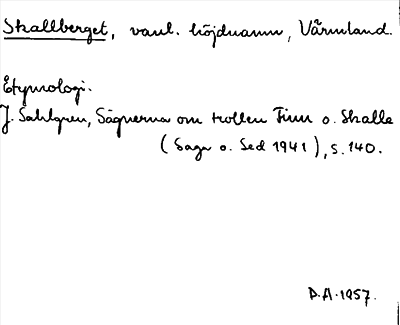 Skallberget, vanl. höjdnamn, Värmland.
Etymologi.
J. Sahlgren, Sägnerna om trollen Finn o. Skalle
(Saga o. Sed 1941), s. 140.
D.A. 1957.